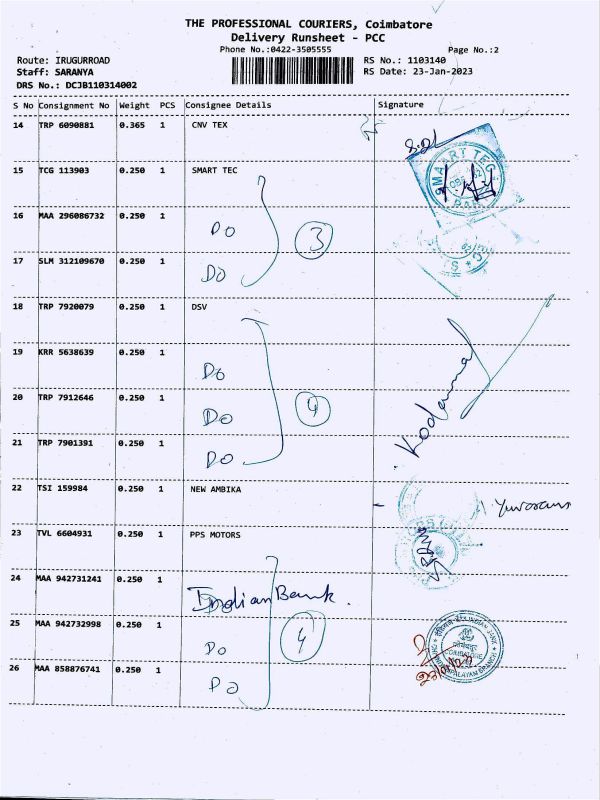 THE PROFESSIONAL COURIERS, Coimbatore
Delivery Runsheet - PCC
Phone No.:0422-3505555
Page No.:2
Route: IRUGURROAD
RS No.: 1103140
Staff: SARANYA
RS Date: 23-Jan-2023
DRS No.: DCJB110314002
S No Consignment No Weight PCS Consignee Details Signature
14 TRP 6090881 0.365 1 CNV TEX
15 TCG 113903 0.250 1 SMART TEC
SMAART TEC
16 MAA 296086732 0.250 1 Do
3
17 SLM 312109670 0.250 1 Do
18 TRP 7920079 0.250 1 DSV
19 KRR 5638639 0.250 1 Do
20 TRP 7912646 0.250 1 Do
4
21 TRP 7901391 0.250 1 Do
22 TSI 159984 0.250 1 NEW AMBIKA
23 TVL 6604931 0.250 1 PPS MOTORS
24 MAA 942731241 0.250 1 Indian Bank.
25 MAA 942732998 0.250 1 Do
4
INDIAN BANK
COIMBATORE
26 MAA 858876741 0.250 1 Do